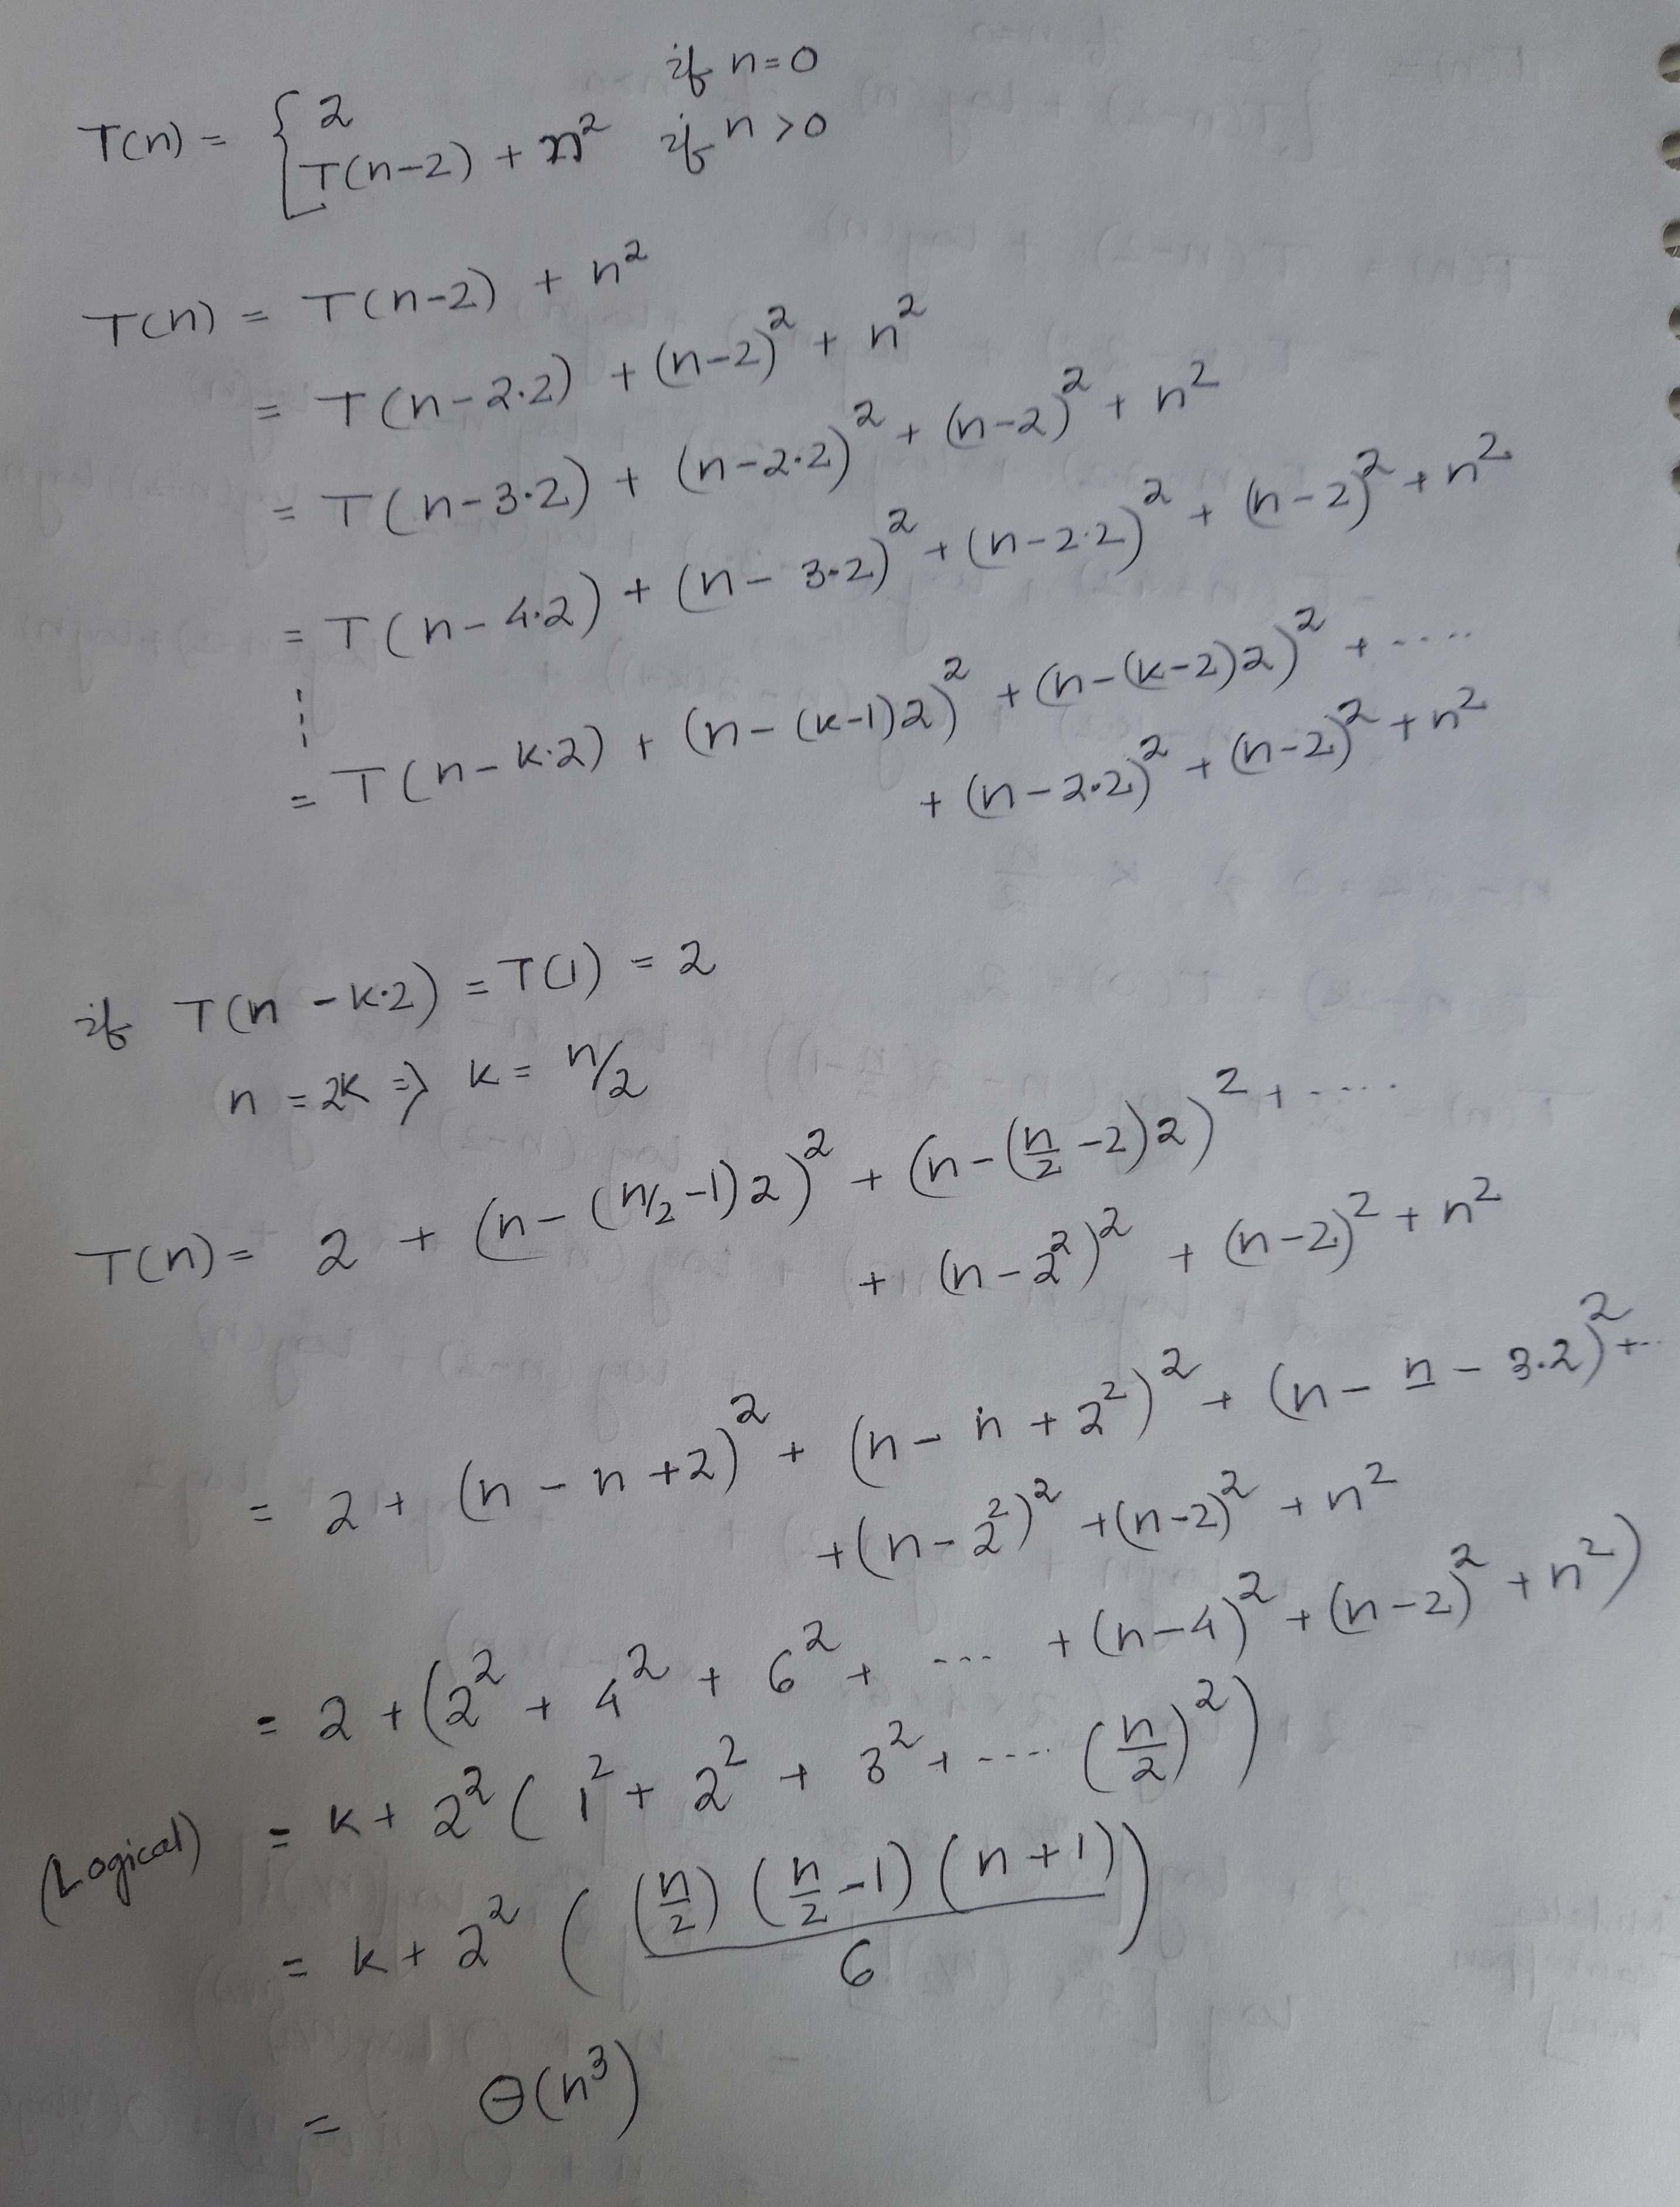 T(n) = { 2 if n=0
T(n-2) + n² if n>0
T(n) = T(n-2) + n²
= T(n-2·2) + (n-2)² + n²
= T(n-3·2) + (n-2·2)² + (n-2)² + n²
= T(n-4·2) + (n-3·2)² + (n-2·2)² + (n-2)² + n²
⋮
= T(n-k·2) + (n-(k-1)2)² + (n-(k-2)2)² + ....
+ (n-2·2)² + (n-2)² + n²
if T(n-k·2) = T(1) = 2
n = 2k ⇒ k = n/2
T(n) = 2 + (n-(n/2-1)2)² + (n-(n/2-2)2)² + ....
+ (n-2²)² + (n-2)² + n²
= 2 + (n-n+2)² + (n-n+2²)² + (n-n-3·2)² + ...
+ (n-2²)² + (n-2)² + n²
= 2 + (2² + 4² + 6² + ... + (n-4)² + (n-2)² + n²)
(Logical) = k + 2² (1² + 2² + 3² + .... (n/2)²)
= k + 2² ((n/2) (n/2-1) (n+1) / 6)
= Θ(n³)